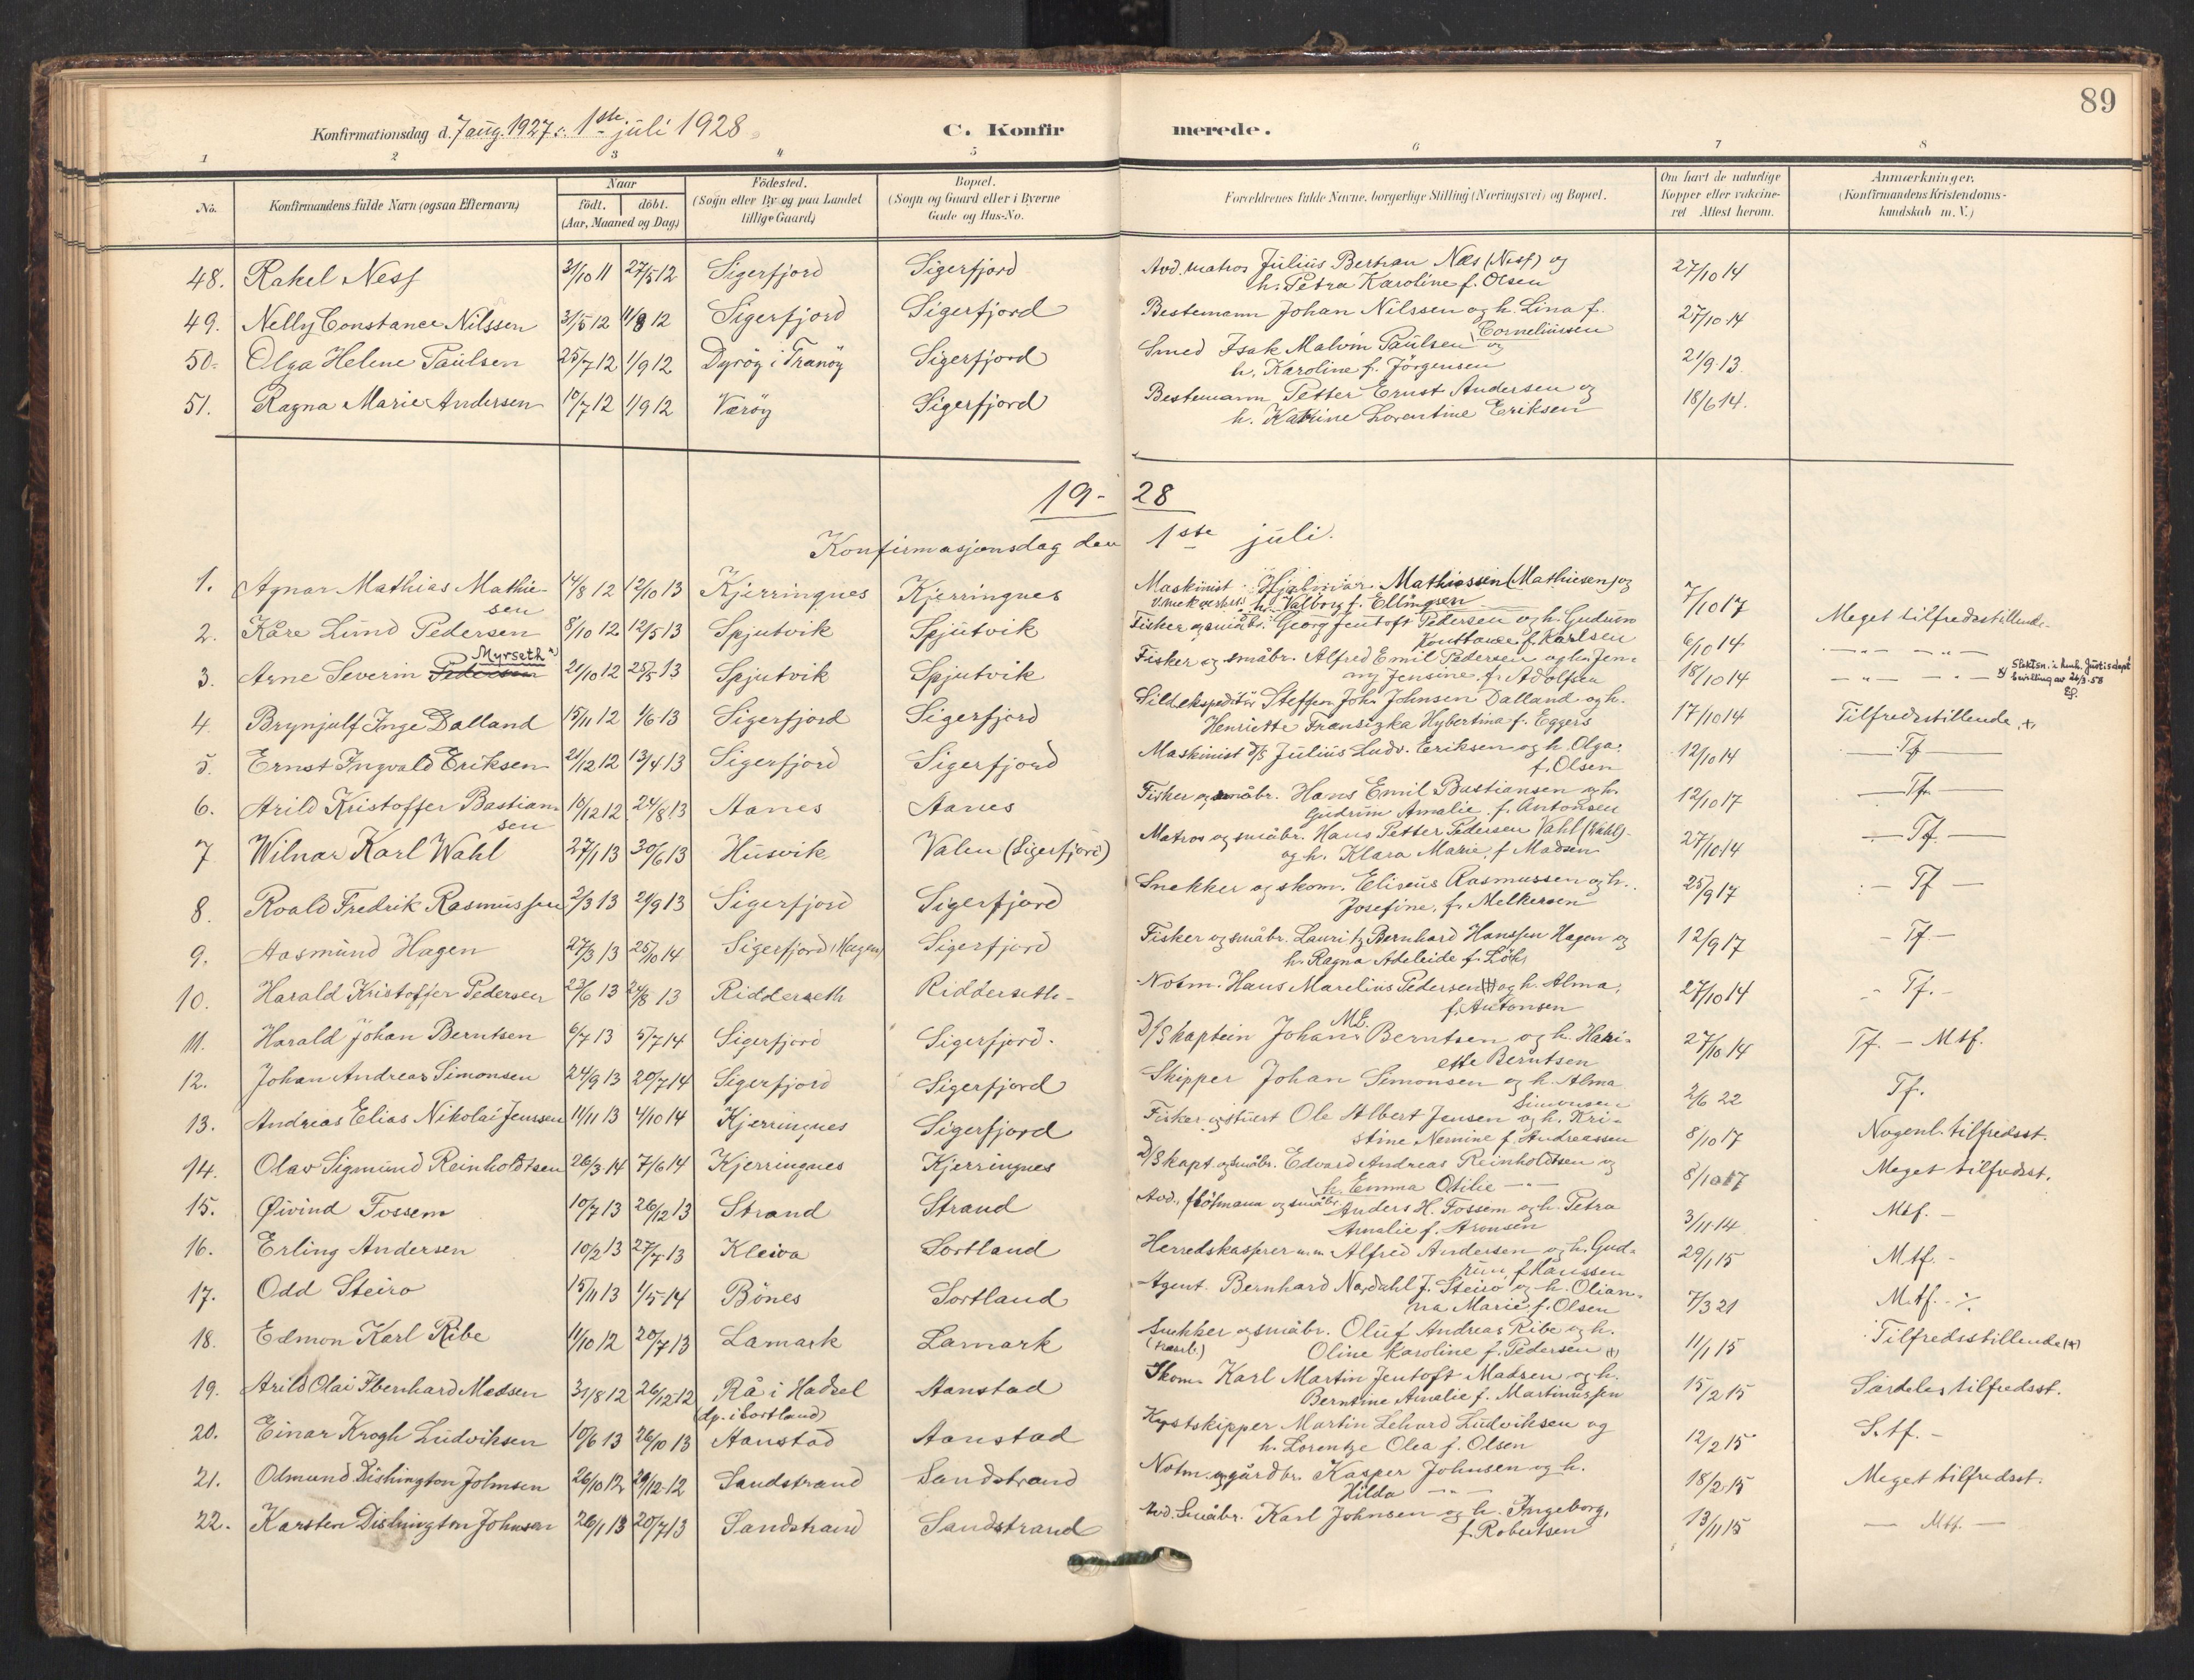 89
Konfirmationsdag d. 7 aug. 1927 1ste juli 1928
C. Konfirmerede.
1 2 3 4 5 6 7 8
No. Konfirmandens fulde Navn (ogsaa Efternavn) Naar født. døbt. (Aar, Maaned og Dag) Födested. (Sogn eller By og paa Landet tillige Gaard) Bopæl. (Sogn og Gaard eller i Byerne Gade og Hus-No. Forældrenes fulde Navne, borgerlige Stilling (Næringsvei) og Bopæl. Om havt de naturlige Kopper eller vakcineret Attest herom. Anmærkninger. (Konfirmandens Kristendomskundskab m. V.)
48. Rakel Ness 31/10 11 27/5 12 Sigerfjord Sigerfjord Avd. matros Julius Bertran Næs (Ness) og 27/10 14
h. Petra Karoline f. Olsen
49. Nelly Constance Nilssen 31/5 12 11/8 12 Sigerfjord Sigerfjord Bestemann Johan Nilssen og h. Lina f. 27/10 14
Corneliussen
50. Olga Helene Paulsen 25/7 12 1/9 12 Dyröy i Tranöy Sigerfjord Smed Isak Malvin Paulsen og 21/9 13
h. Karoline f. Jörgensen
51. Ragna Marie Andersen 10/7 12 1/9 12 Væröy Sigerfjord Bestemann Petter Ernst Andersen og 18/6 14.
h. Katrine Lorentine Eriksen
19-28
Konfirmasjonsdag den 1ste juli.
1. Agnar Mathias Mathiesen 14/8 12 12/10 13 Kjerringnes Kjerringnes Maskinist Hjalmar Mathiassen (Mathiesen) og 7/10 17 Meget tilfredsstillende
h. Valborg f. Ellingsen
2. Kåre Lund Pedersen 8/10 12 12/5 13 Spjutvik Spjutvik Fisker og småbr. Georg Jentoft Pedersen og h. Gudrun 6/10 14 -"- -"-
Konstanse f. Karlsen
Myrseth x)
3. Arne Severin Pedersen 21/10 12 25/5 13 Spjutvik Spjutvik Fisker og småbr. Alfred Emil Pedersen og h. Jen- 18/10 14 -"- -"- x) Slektsn. i h.h. Justisdept bevilling av 26/3-58
ny Jensine f. Adolfsen
4 Brynjulf Inge Dalland 15/11 12 1/6 13 Sigerfjord Sigerfjord Sildekspeditör Steffen Joh. Johnsen Dalland og h. 17/10 14 Tilfredsstillende
Henriette Fransizka Hybertina f. Eggers
5. Ernst Ingvald Eriksen 21/12 12 13/4 13 Sigerfjord Sigerfjord Maskinist D/S Julius Ludv. Eriksen og h. Olga 12/10 14 Tf
f. Olsen
6. Arild Kristoffer Bastiansen 10/12 12 24/8 13 Aanes Aanes Fisker og småbr. Hans Emil Bastiansen og h. 12/10 17 Tf.
Gudrun Amalie f. Antonsen
7 Wilnar Karl Wahl 27/1 13 30/6 13 Husvik Valen (Sigerfjord) Matros og småbr. Hans Petter Pedersen Vahl (Wahl) 27/10 14 Tf.
og h. Klara Marie f. Madsen
8. Roald Fredrik Rasmussen 2/3 13 21/9 13 Sigerfjord Sigerfjord Snekker og skom. Eliseus Rasmussen og h. 25/9 17 Tf
Josefine f. Melkersen
9. Aasmund Hagen 27/3 13 25/10 14 Sigerfjord (Hagen) Sigerfjord Fisker og småbr. Lauritz Bernhard Hanssen Hagen og 12/9 17 Tf.
h. Ragna Adeleide f. Löhr
10. Harald Kristoffer Pedersen 23/6 13 24/8 13 Ridderseth Ridderseth Notm. Hans Marelius Pedersen (+) og h. Alma 27/10 14 Tf.
f. Antonsen
11. Harald Johan Berntsen 6/7 13 5/7 14 Sigerfjord Sigerfjord. D/S kaptein Johan M.E. Berntsen og h. Hari- 27/10 14 Tf. - Mtf.
ette Berntsen
12. Johan Andreas Simonsen 24/9 13 20/7 14 Sigerfjord Sigerfjord Skipper Johan Simonsen og h. Alma 2/6 22 Tf.
Simonsen
13. Andreas Elias Nikolai Jenssen 11/11 13 4/10 14 Kjerringnes Sigerfjord Fisker og stuert Ole Albert Jensen og h. Kri- 8/10 17 Nogenl. tilfredsst.
stine Nemine f. Andreassen
14. Olav Sigmund Reinholdtsen 26/3 14 7/6 14 Kjerringnes Kjerringnes D/S kapt. og småbr. Edvard Andreas Reinholdtsen og 8/10 17 Meget tilfredsst.
h. Emma Otilie -"-
15. Øivind Fossem 10/7 13 26/12 13 Strand Strand Avd. flötmann og småbr. Anders H. Fossem og h. Petra 3/11 14 Mtf.
Amalie f. Aronsen
16. Erling Andersen 10/2 13 27/7 13 Kleiva Sortland Herredskasserer m.m. Alfred Andersen og h. Gud- 29/1 15 Mtf.
run f. Hanssen
17. Odd Steiro 15/11 13 1/5 14 Bönes Sortland Agent. Bernhard Nordahl J. Steiro og h. Olian- 7/3 21 Mtf.
na Marie f. Olsen
18. Edmon Karl Ribe 11/10 12 20/7 13 Lamark Lamark Snekker og småbr. Oluf Andreas Ribe og h. 11/1 15 Tilfredsstillende (+)
Oline Karoline f. Pedersen
19. Arild Olai Ebenhard Madsen 31/8 12 26/12 12 Rå i Hadsel Aanstad Skom. Karl Martin Jentoft Madsen og h. 15/2 15 Særdeles tilfredsst.
(dp. i Sortland) Berntine Amalie f. Martinussen
20. Einar Krogh Ludviksen 10/6 13 26/10 13 Aanstad Aanstad Kystskipper Martin Lehard Ludviksen og 12/2 15 S.tf.
h. Lorentze Olea f. Olsen
21. Odmund Dishington Johnsen 26/10 12 29/12 12 Sandstrand Sandstrand Notm. og gårdbr. Kasper Johnsen og h. 18/2 15 Meget tilfredsst.
Hilda -"-
22. Karsten Dishington Johnsen 26/1 13 20/7 13 Sandstrand Sandstrand Avd. Småbr. Karl Johnsen og h. Ingeborg 13/11 15 Mtf.
f. Robertsen